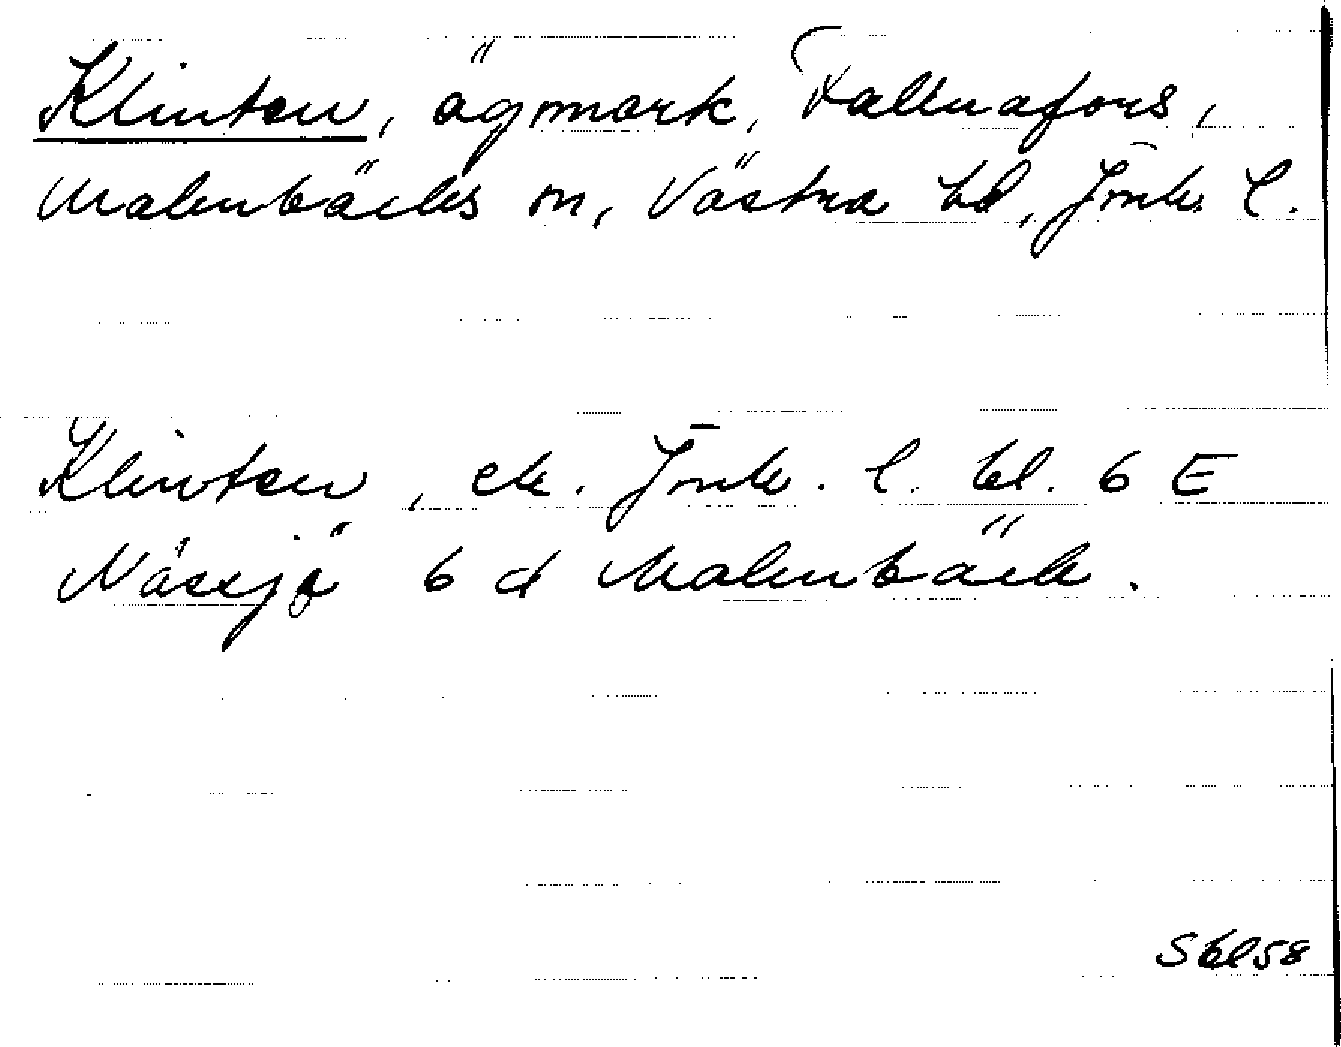 Klinten, ägmark, Fallnafors,
Malmbäcks sn, Västra hd, Jönk. l.
Klinten, ek. Jönk. l. bl. 6 E
Nässjö 6 d Malmbäck.
S bl 58